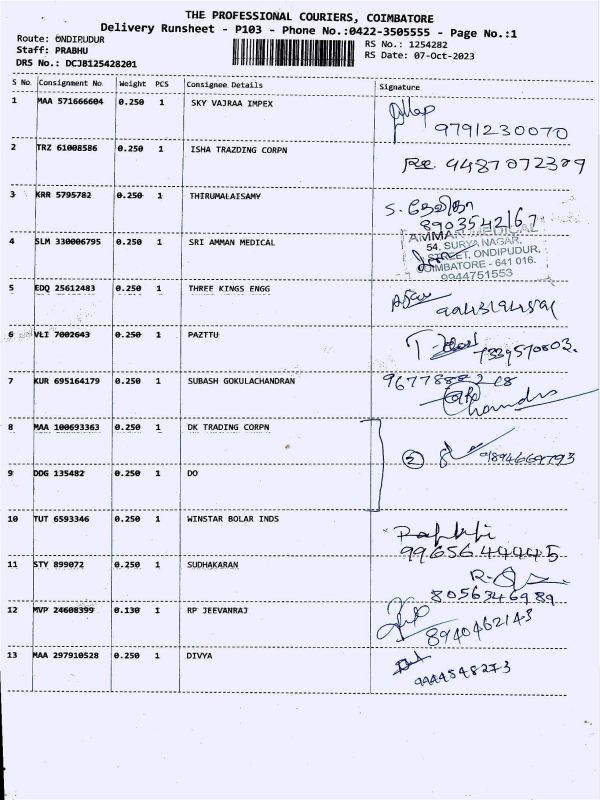 THE PROFESSIONAL COURIERS, COIMBATORE
Delivery Runsheet - P103 - Phone No.:0422-3505555 - Page No.:1
Route: ONDIPUDUR
RS No.: 1254282
Staff: PRABHU
RS Date: 07-Oct-2023
DRS No.: DCJB125428201
S No Consignment No Weight PCS Consignee Details Signature
1 MAA 571666604 0.250 1 SKY VAJRAA IMPEX
9791230070
2 TRZ 61008586 0.250 1 ISHA TRAZDING CORPN
9487072389
3 KRR 5795782 0.250 1 THIRUMALAISAMY
S. தேவிகா
8903542167
4 SLM 330006795 0.250 1 SRI AMMAN MEDICAL
AMMAN MEDICAL
54, SURYA NAGAR,
STREET, ONDIPUDUR,
COIMBATORE - 641 016.
9944751553
5 EDQ 25612483 0.250 1 THREE KINGS ENGG
6 VLI 7002643 0.250 1 PAZTTU
7339570803.
7 KUR 695164179 0.250 1 SUBASH GOKULACHANDRAN
8 MAA 100693363 0.250 1 DK TRADING CORPN
② 9894669793
9 DDG 135482 0.250 1 DO
10 TUT 6593346 0.250 1 WINSTAR BOLAR INDS
9965644445
11 STY 899072 0.250 1 SUDHAKARAN
8056346989
12 MVP 24608399 0.130 1 RP JEEVANRAJ
8940462143
13 MAA 297910528 0.250 1 DIVYA
9444548273